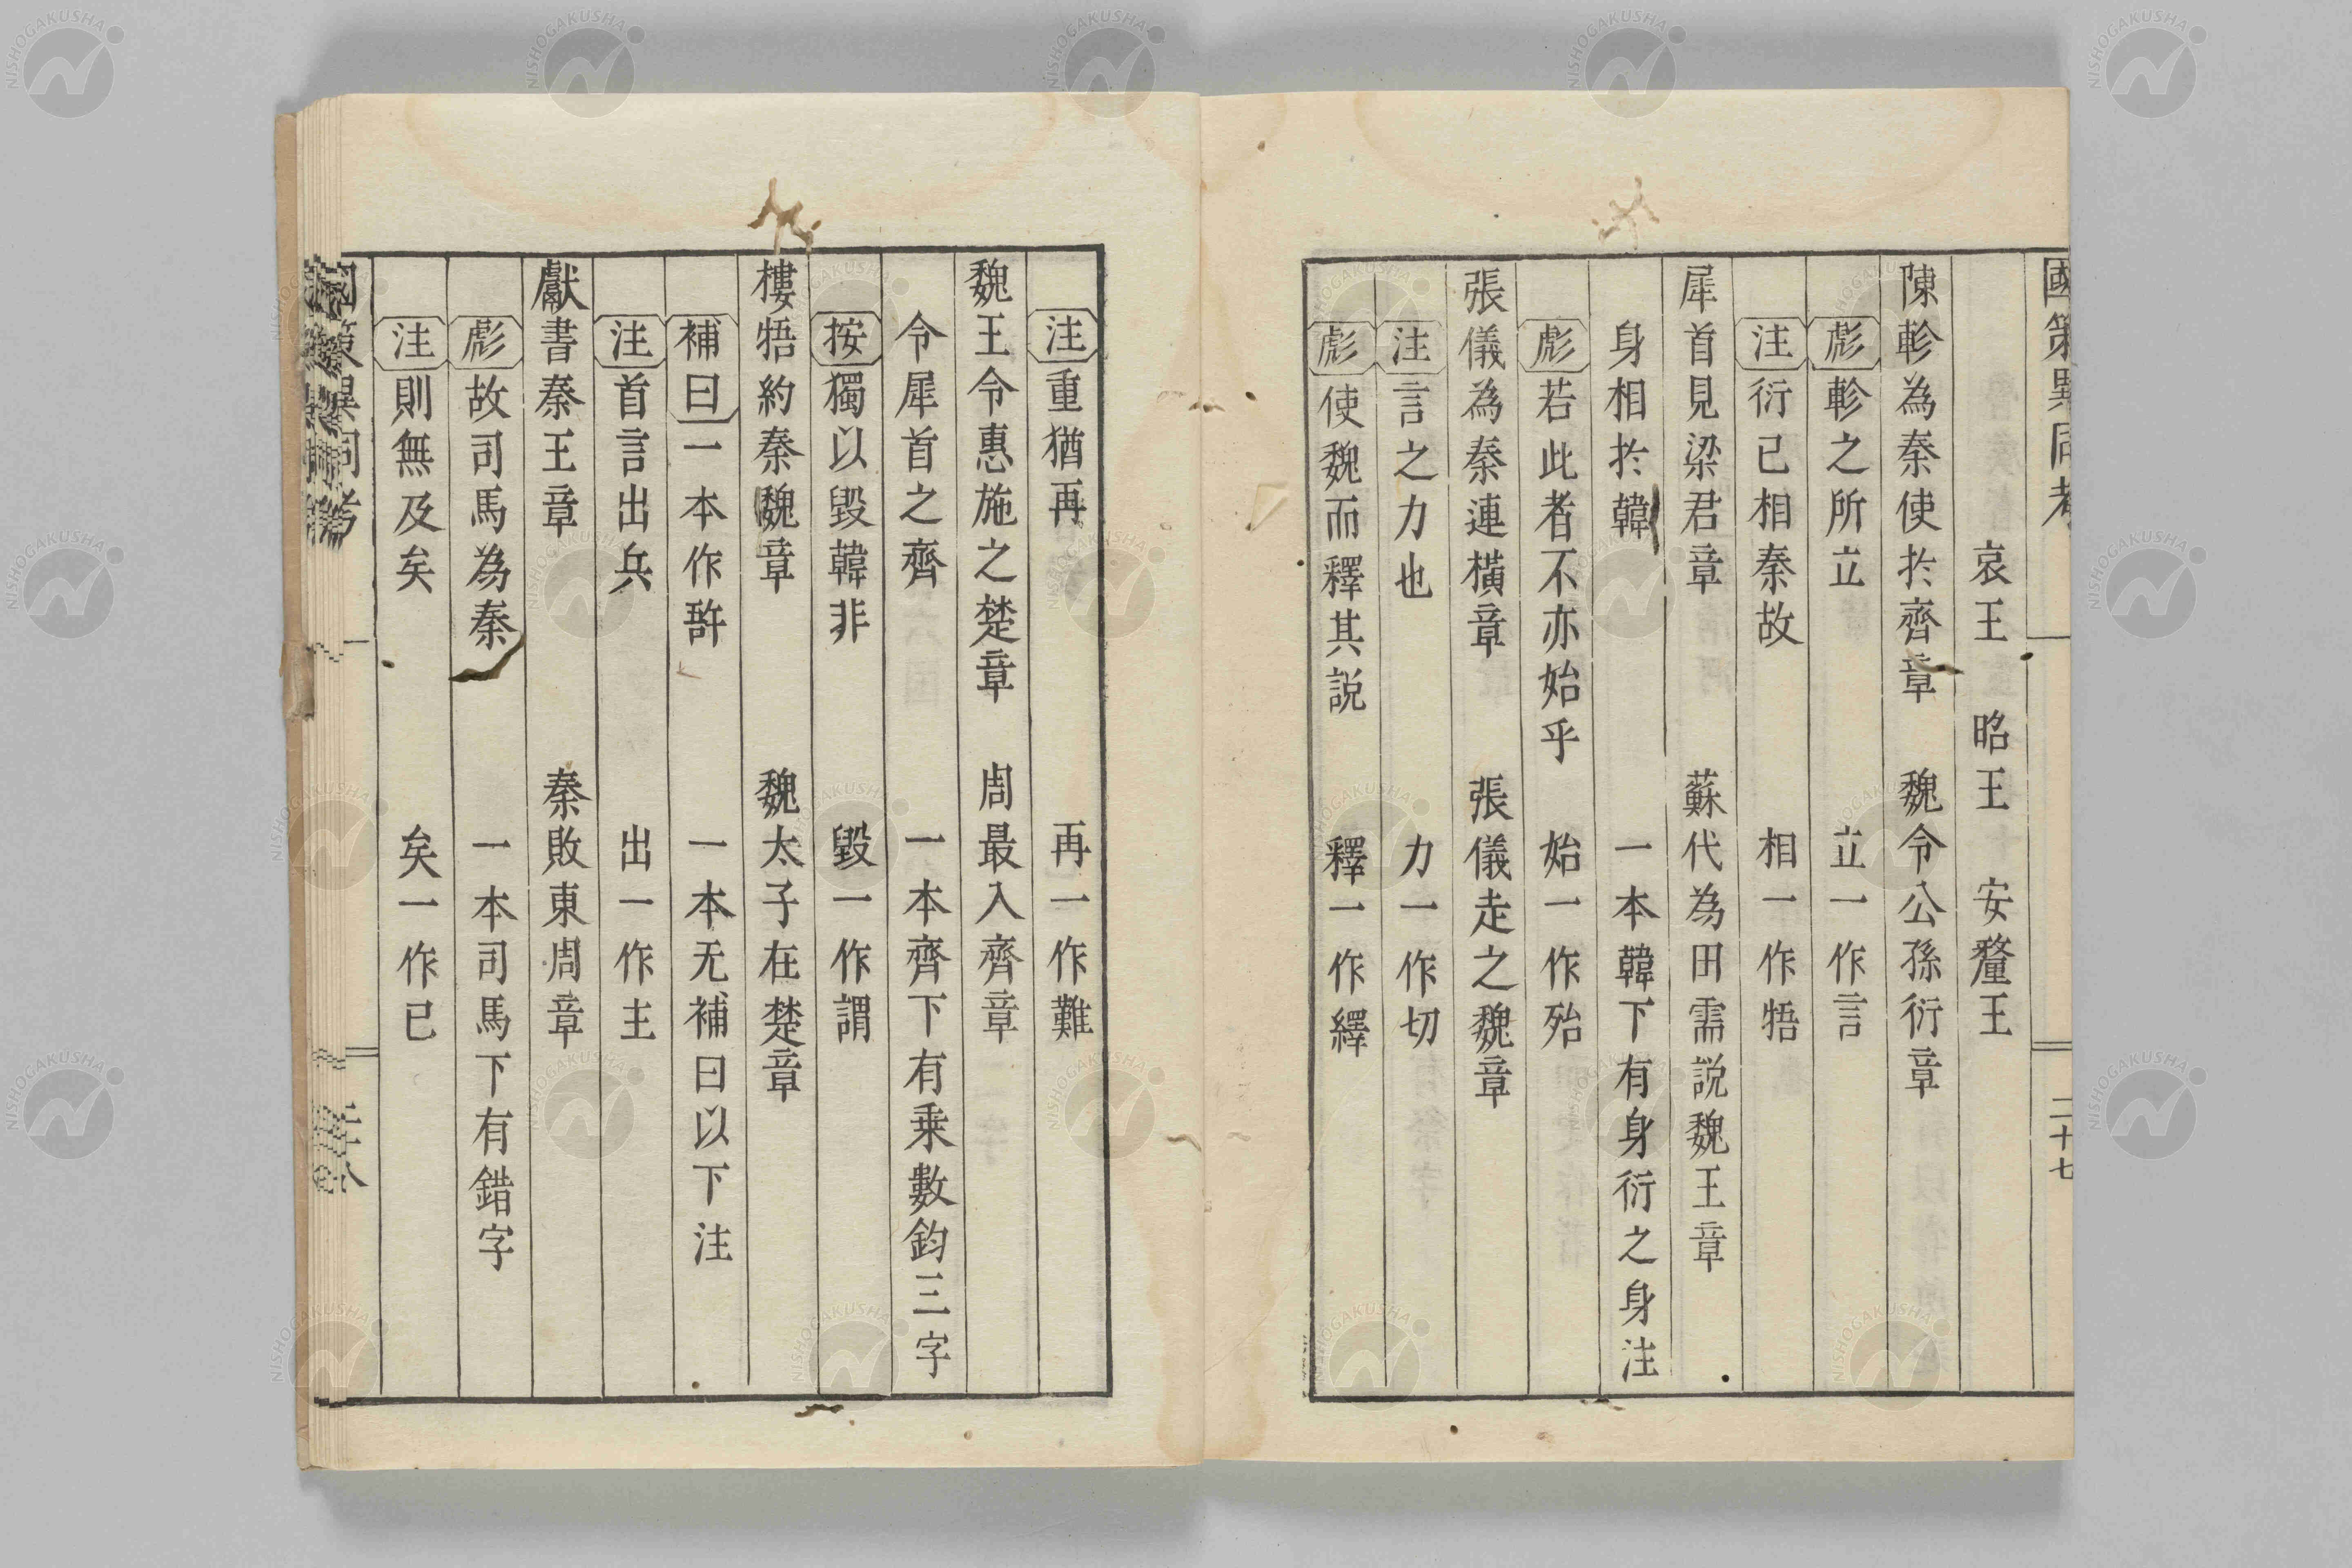 國策異同考 二十七
哀王 昭王 安釐王
陳軫為秦使於齊章 魏令公孫衍章
彪 軫之所立 立一作言
注 衍已相秦故 相一作牾
犀首見梁君章 蘇代為田需説魏王章
身相於韓 一本韓下有身衍之身注
彪 若此者不亦始乎 始一作殆
張儀為秦連橫章 張儀走之魏章
注 言之力也 力一作切
彪 使魏而釋其説 釋一作繹
注 重猶再 再一作難
魏王令惠施之楚章 周最入齊章
令犀首之齊 一本齊下有乗數鈞三字
按 獨以毀韓非 毀一作謂
樓牾約秦魏章 魏太子在楚章
補曰 一本作䛯 一本无補曰以下注
注 首言出兵 出一作主
獻書秦王章 秦敗東周章
彪 故司馬為秦 一本司馬下有錯字
注 則無及矣 矣一作已
國策異同考 二十八
NISHOGAKUSHA